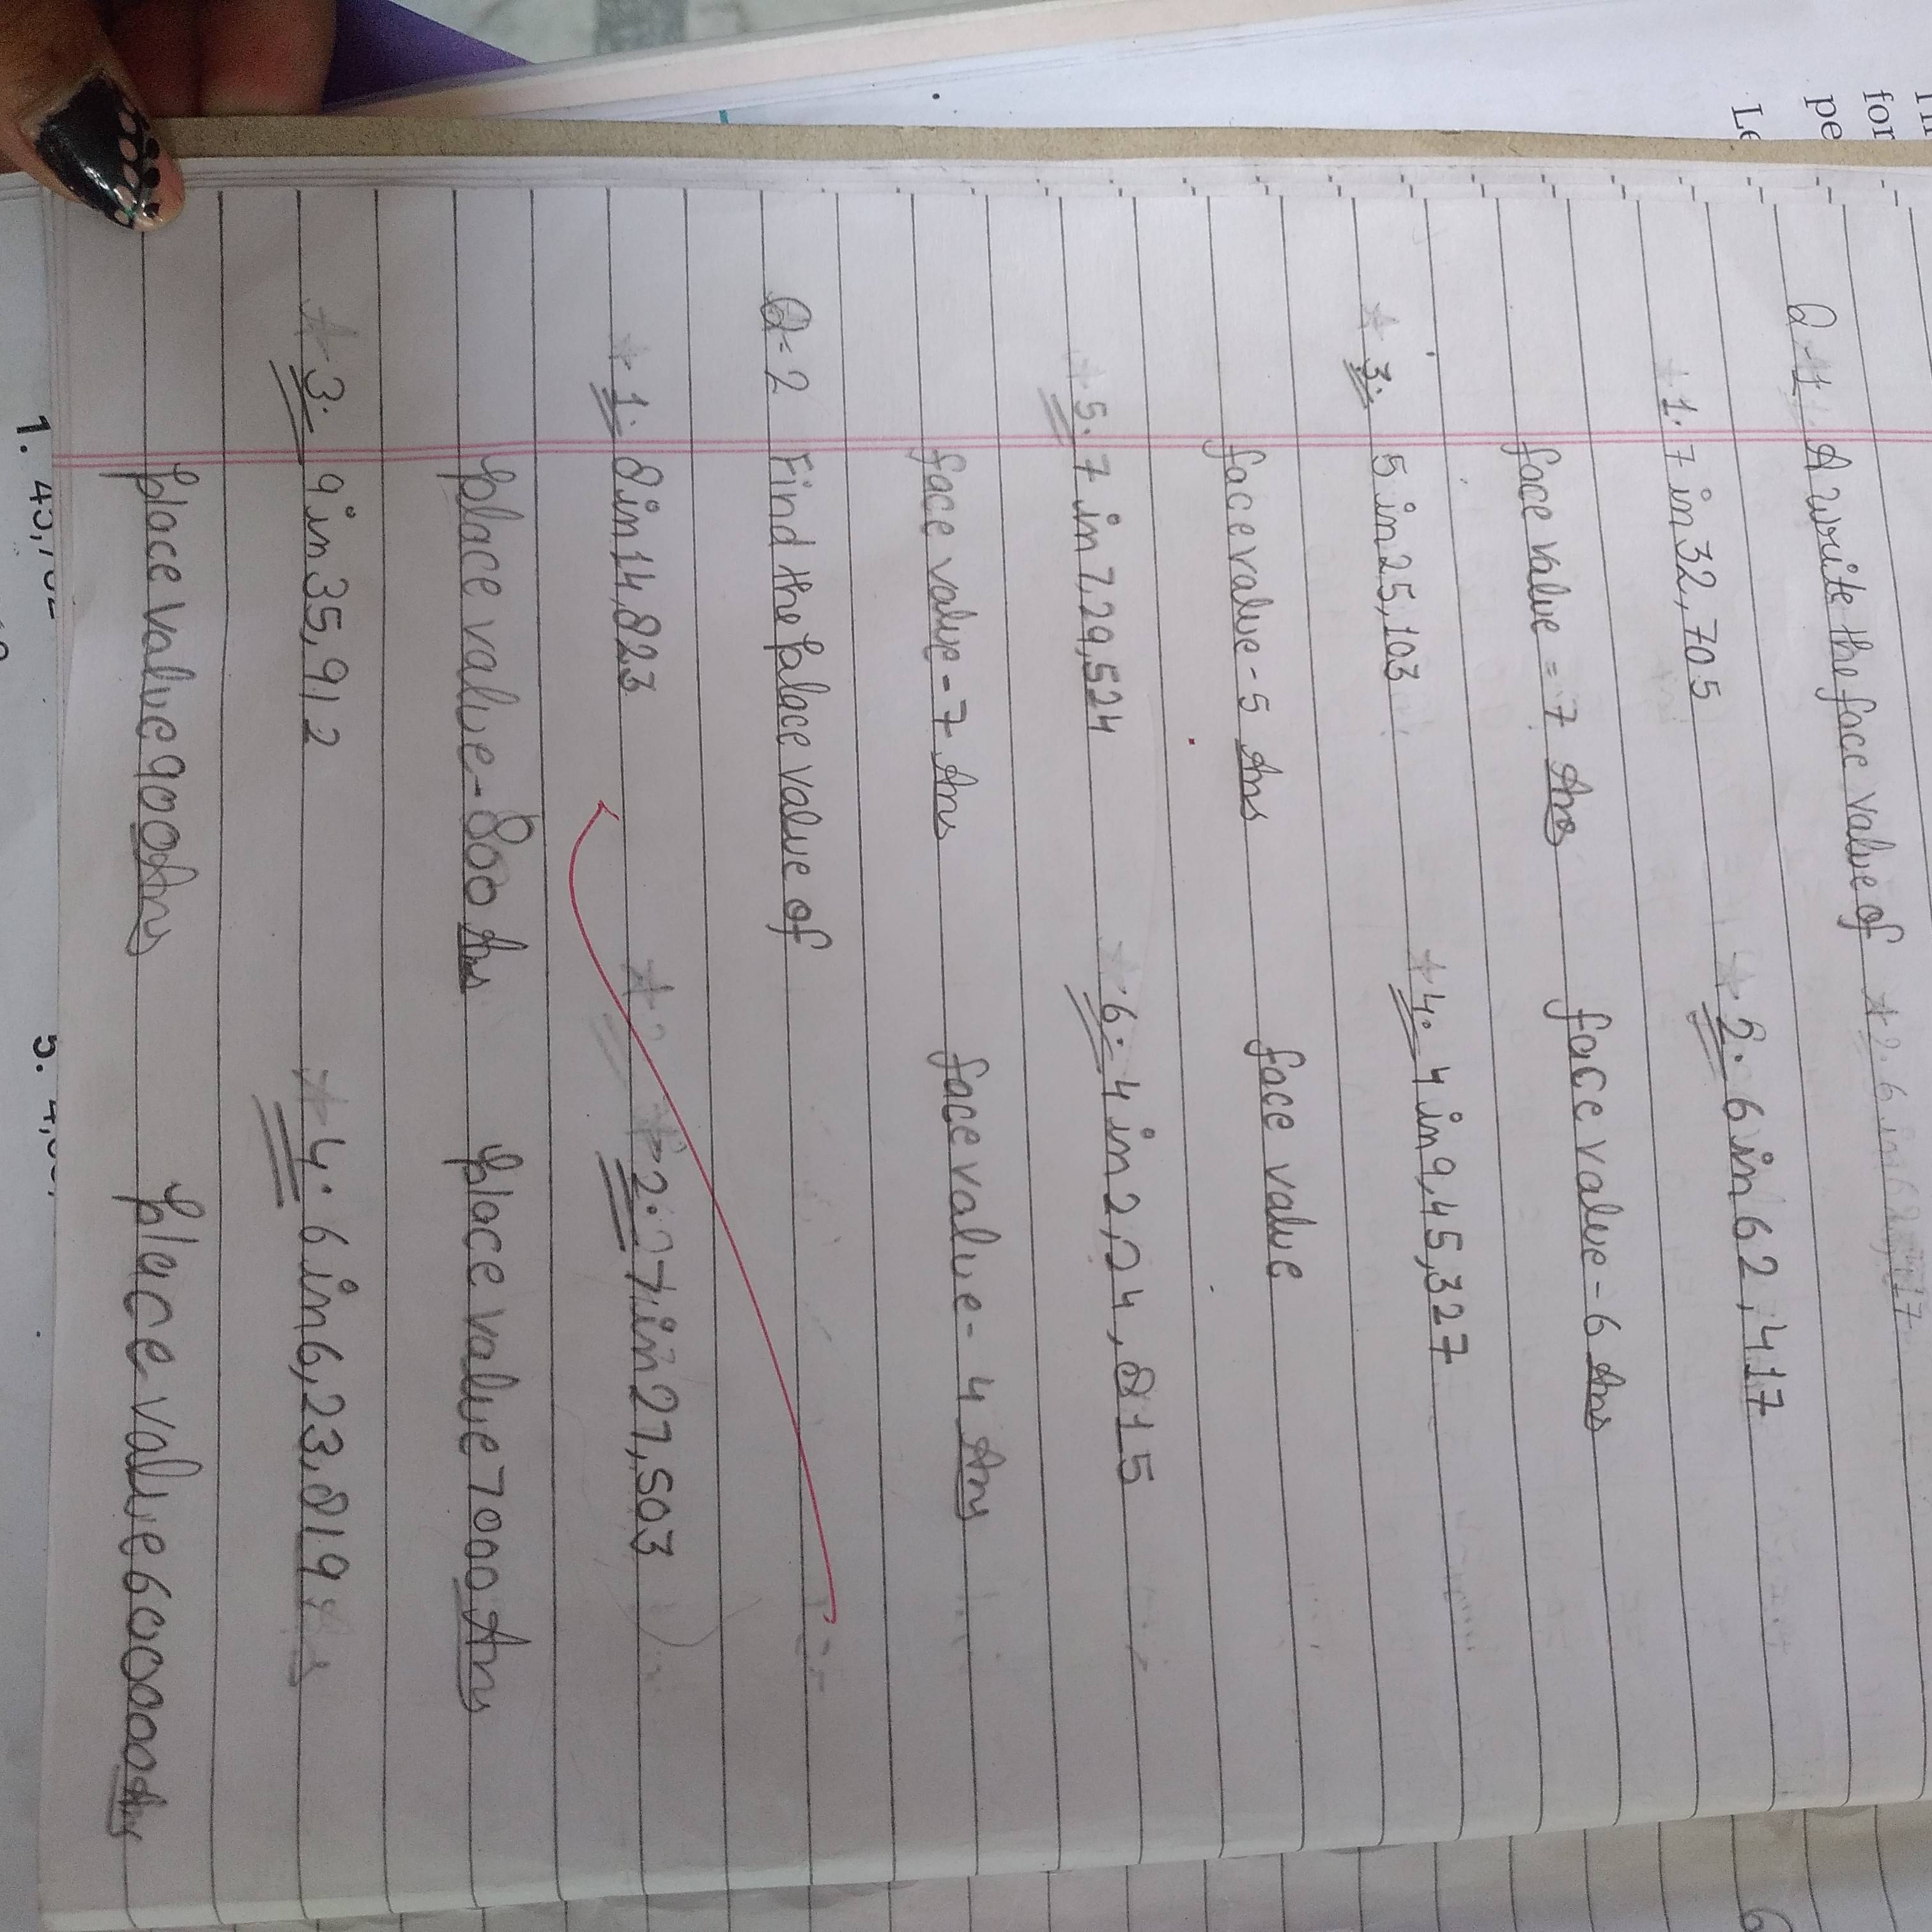 Q-1 A write the face value of
1. 7 in 32,705 2. 6 in 62,417
face value = 7 Ans face value - 6 Ans
3. 5 in 25,103 4. 4 in 9,45,327
face value - 5 Ans face value
5. 7 in 7,29,524 6. 4 in 2,24,815
face value - 7 Ans face value - 4 Ans
Q-2 Find the place value of
1. 8 in 14,823 2. 7 in 27,503
place value - 800 Ans place value 7000 Ans
3. 9 in 35,912 4. 6 in 6,23,819
place value 900 Ans place value 600000 Ans
for
pe